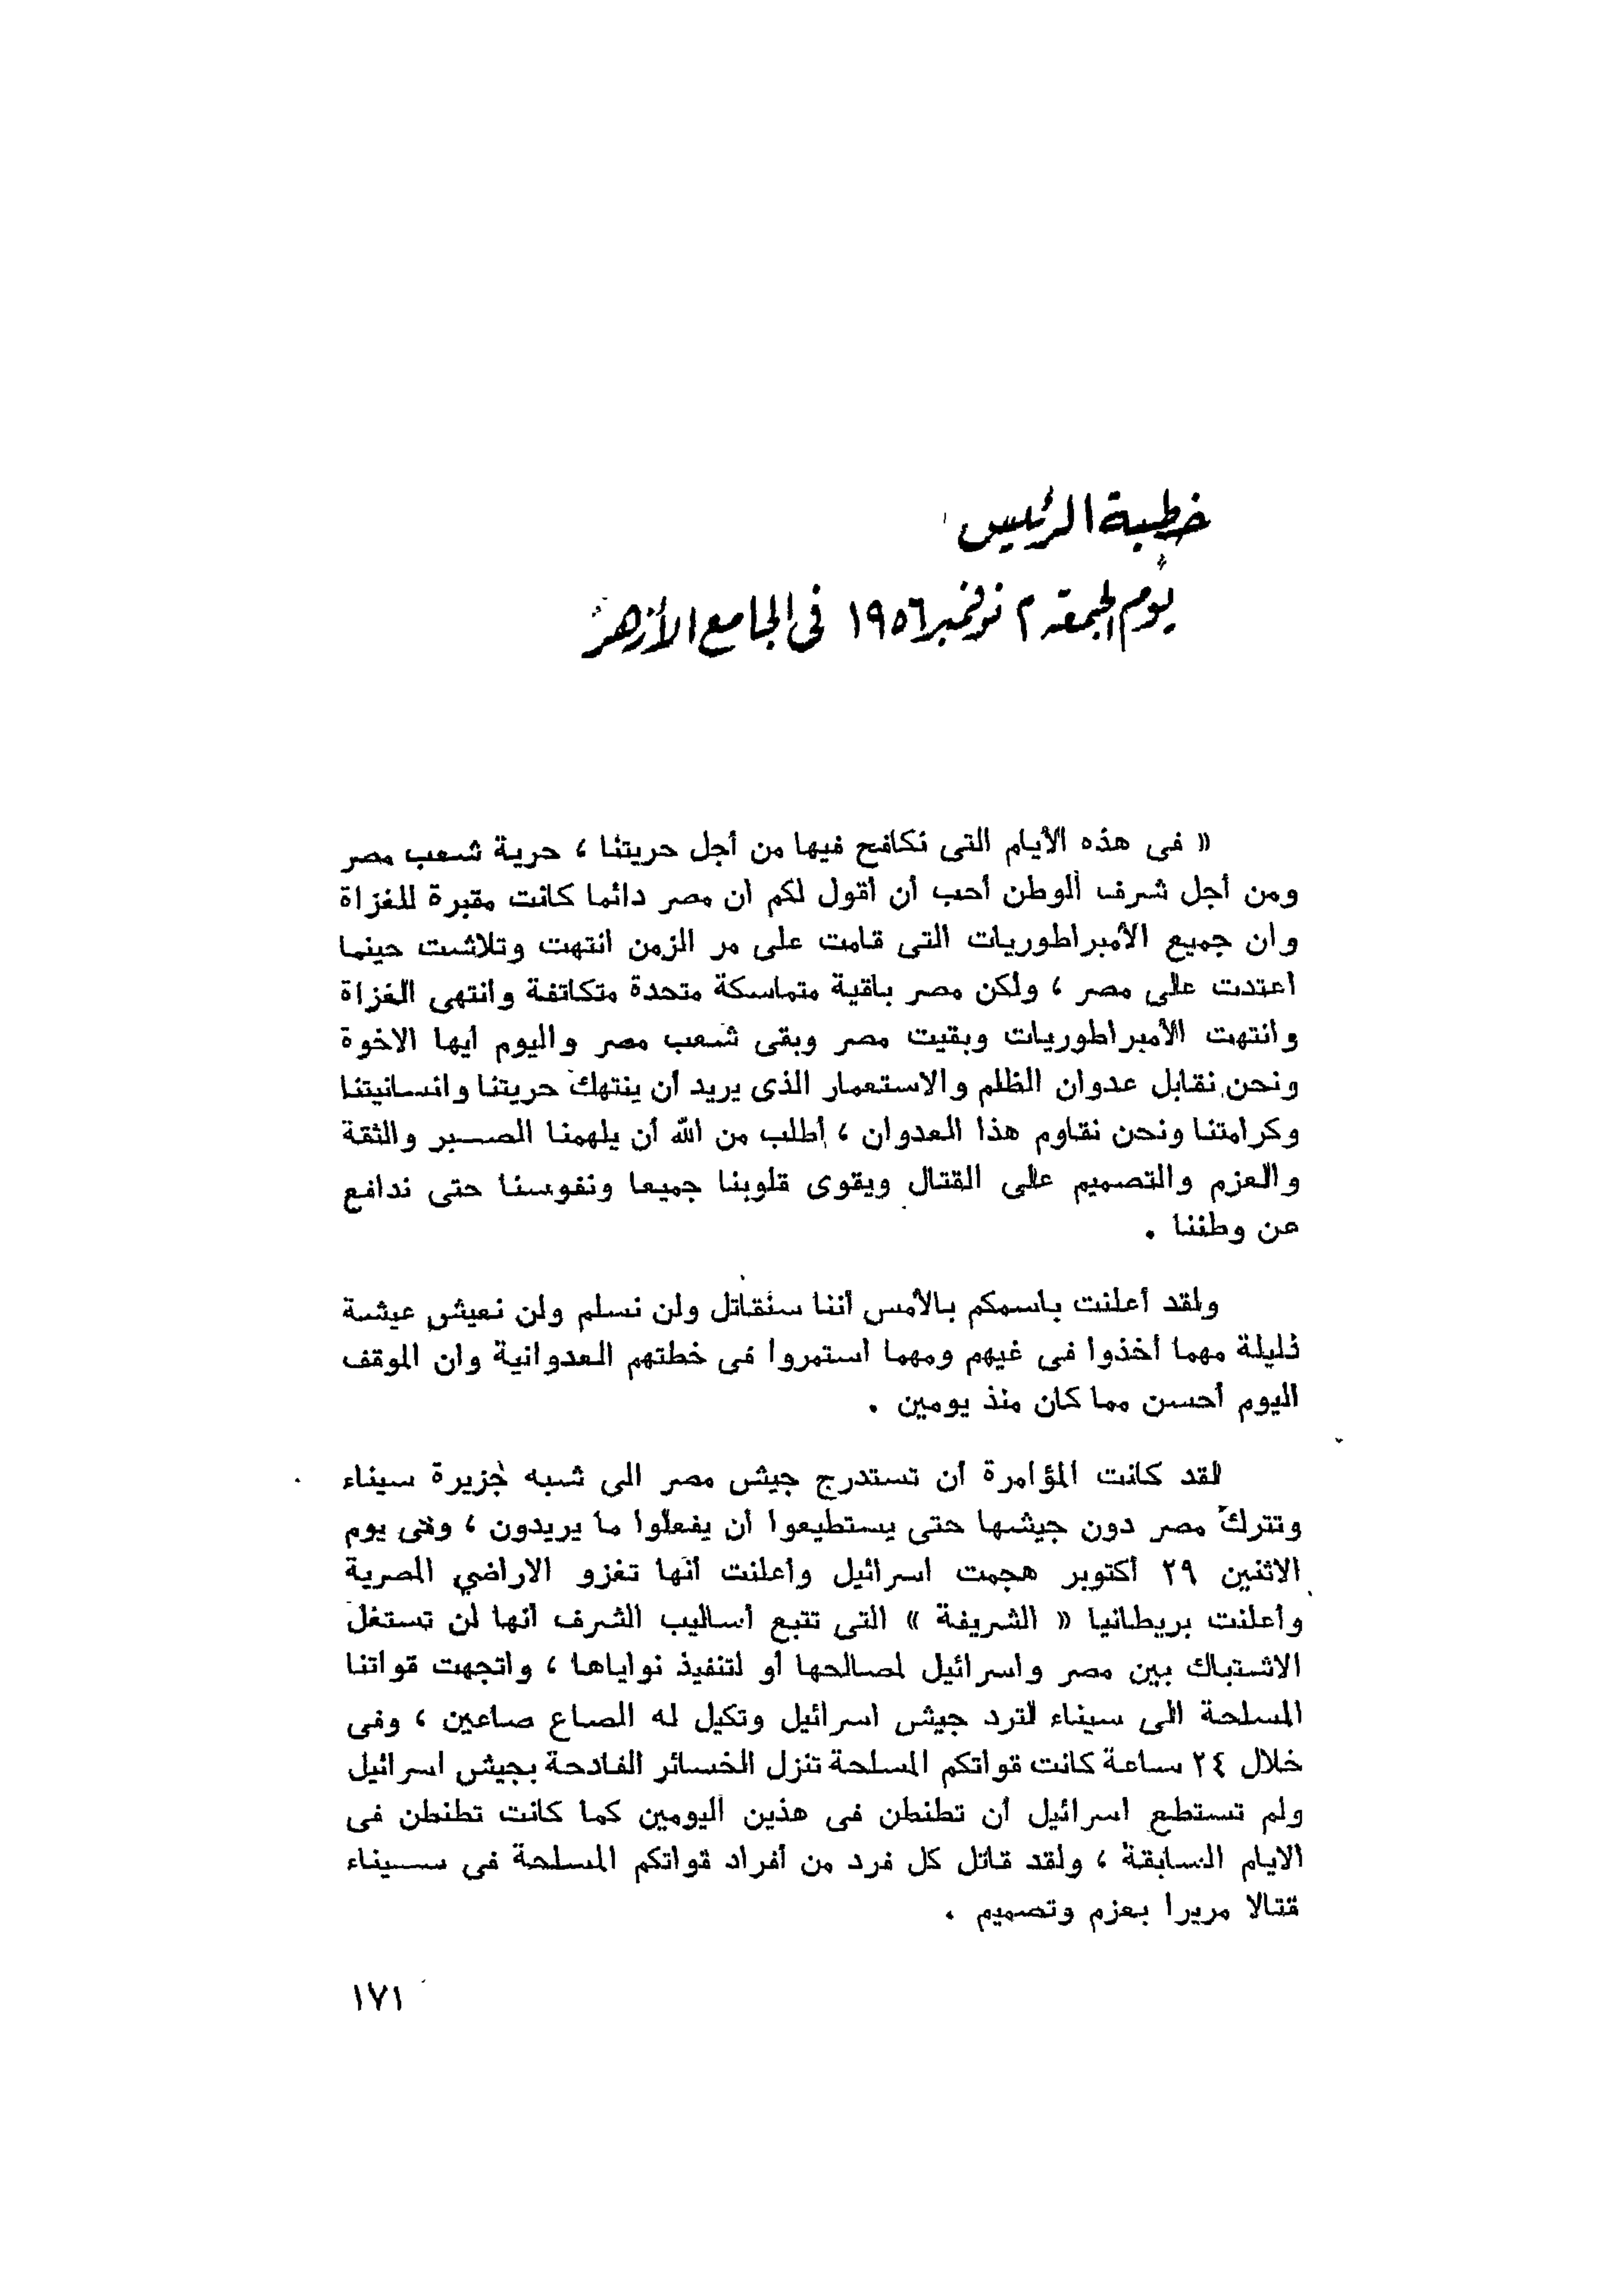 خطبة الرئيس
يوم الجمعة ٢ نوفمبر ١٩٥٦ فى الجامع الأزهر
« فى هذه الأيام التى نكافح فيها من أجل حريتنا ، حرية شعب مصر
ومن أجل شرف الوطن أحب أن أقول لكم ان مصر دائما كانت مقبرة للغزاة
وان جميع الأمبراطوريات التى قامت على مر الزمن انتهت وتلاشت حينما
اعتدت على مصر ، ولكن مصر باقية متماسكة متحدة متكاتفة وانتهى الغزاة
وانتهت الأمبراطوريات وبقيت مصر وبقى شعب مصر واليوم أيها الاخوة
ونحن نقابل عدوان الظلم والاستعمار الذى يريد أن ينتهك حريتنا وانسانيتنا
وكرامتنا ونحن نقاوم هذا العدوان ، أطلب من الله أن يلهمنا الصبر والثقة
والعزم والتصميم على القتال ويقوى قلوبنا جميعا ونفوسنا حتى ندافع
عن وطننا .
ولقد أعلنت باسمكم بالأمس أننا سنقاتل ولن نسلم ولن نعيش عيشة
ذليلة مهما أخذوا فى غيهم ومهما استمروا فى خطتهم العدوانية وان الموقف
اليوم أحسن مما كان منذ يومين .
لقد كانت المؤامرة أن تستدرج جيش مصر الى شبه جزيرة سيناء
وتترك مصر دون جيشها حتى يستطيعوا أن يفعلوا ما يريدون ، وفى يوم
الاثنين ٢٩ أكتوبر هجمت اسرائيل وأعلنت أنها تغزو الاراضي المصرية
وأعلنت بريطانيا « الشريفة » التى تتبع أساليب الشرف أنها لن تستغل
الاشتباك بين مصر واسرائيل لصالحها أو لتنفيذ نواياها ، واتجهت قواتنا
المسلحة الى سيناء لترد جيش اسرائيل وتكيل له الصاع صاعين ، وفى
خلال ٢٤ ساعة كانت قواتكم المسلحة تنزل الخسائر الفادحة بجيش اسرائيل
ولم تستطع اسرائيل أن تطنطن فى هذين اليومين كما كانت تطنطن فى
الايام السابقة ، ولقد قاتل كل فرد من أفراد قواتكم المسلحة فى سيناء
قتالا مريرا بعزم وتصميم .
١٧١